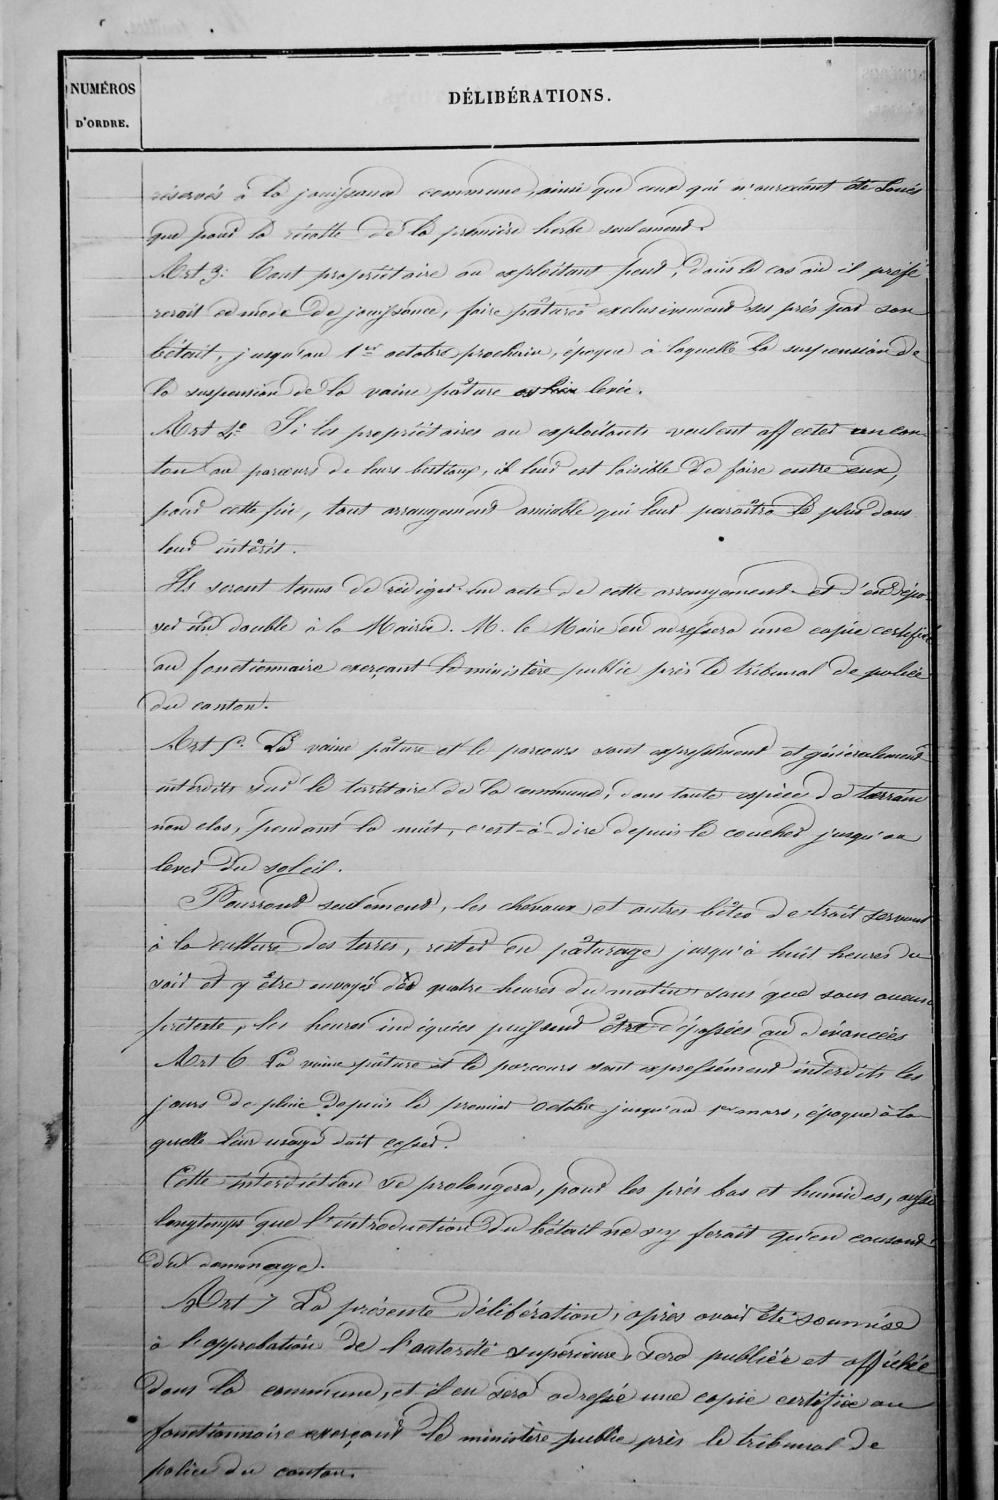 NUMÉROS
D'ORDRE.
DÉLIBÉRATIONS.
réservés à la jouissance commune, ainsi que ceux qui n'auraient été loués
que pour la récolte de la première herbe seulement.
Art 3: Tout propriétaire ou exploitant peut, dans le cas où il préfé
rerait ce mode de jouissance, faire pâturer exclusivement ses prés par son
bétail, jusqu'au 1er octobre prochain, époque à laquelle la suspension de
la suspension de la vaine pâture levée.
Art 4e Si les propriétaires ou exploitants veulent affecter un can
ton au parcours de leurs bestiaux, il leur est loisible de faire entre eux,
pour cette fin, tout arrangement amiable qui leur paraîtra le plus dans
leur intérêt.
Ils seront tenus de rédiger un acte de cette arrangement et d'en dépo
ser un double à la Mairie. M. le Maire en adressera une copie certifiée
au fonctionnaire exerçant le ministère public près le tribunal de police
du canton.
Art 5e La vaine pâture et le parcours sont expressément et généralement
interdits sur le territoire de la commune, dans toute espèce de terrain
non clos, pendant la nuit, c'est-à-dire depuis le coucher jusqu'au
lever du soleil.
Pourront seulement, les chevaux et autres bêtes de trait servant
à la culture des terres, rester en pâturage jusqu'à huit heures du
soir et y être envoyés dès quatre heures du matin sans que sous aucun
prétexte, les heures indiquées puissent être dépassées ou devancées
Art 6 La vaine pâture et le parcours sont expressément interdits les
jours de pluie depuis le premier octobre jusqu'au 1er mars, époque à la
quelle leur usage doit cesser.
Cette interdiction se prolongera, pour les prés bas et humides, aussi
longtemps que l'introduction du bétail ne s'y ferait qu'en causant
du dommage.
Art 7 La présente délibération, après avoir été soumise
à l'approbation de l'autorité supérieure, sera publiée et affichée
dans la commune, et il en sera adressé une copie certifiée au
fonctionnaire exerçant le ministère public près le tribunal de
police du canton.